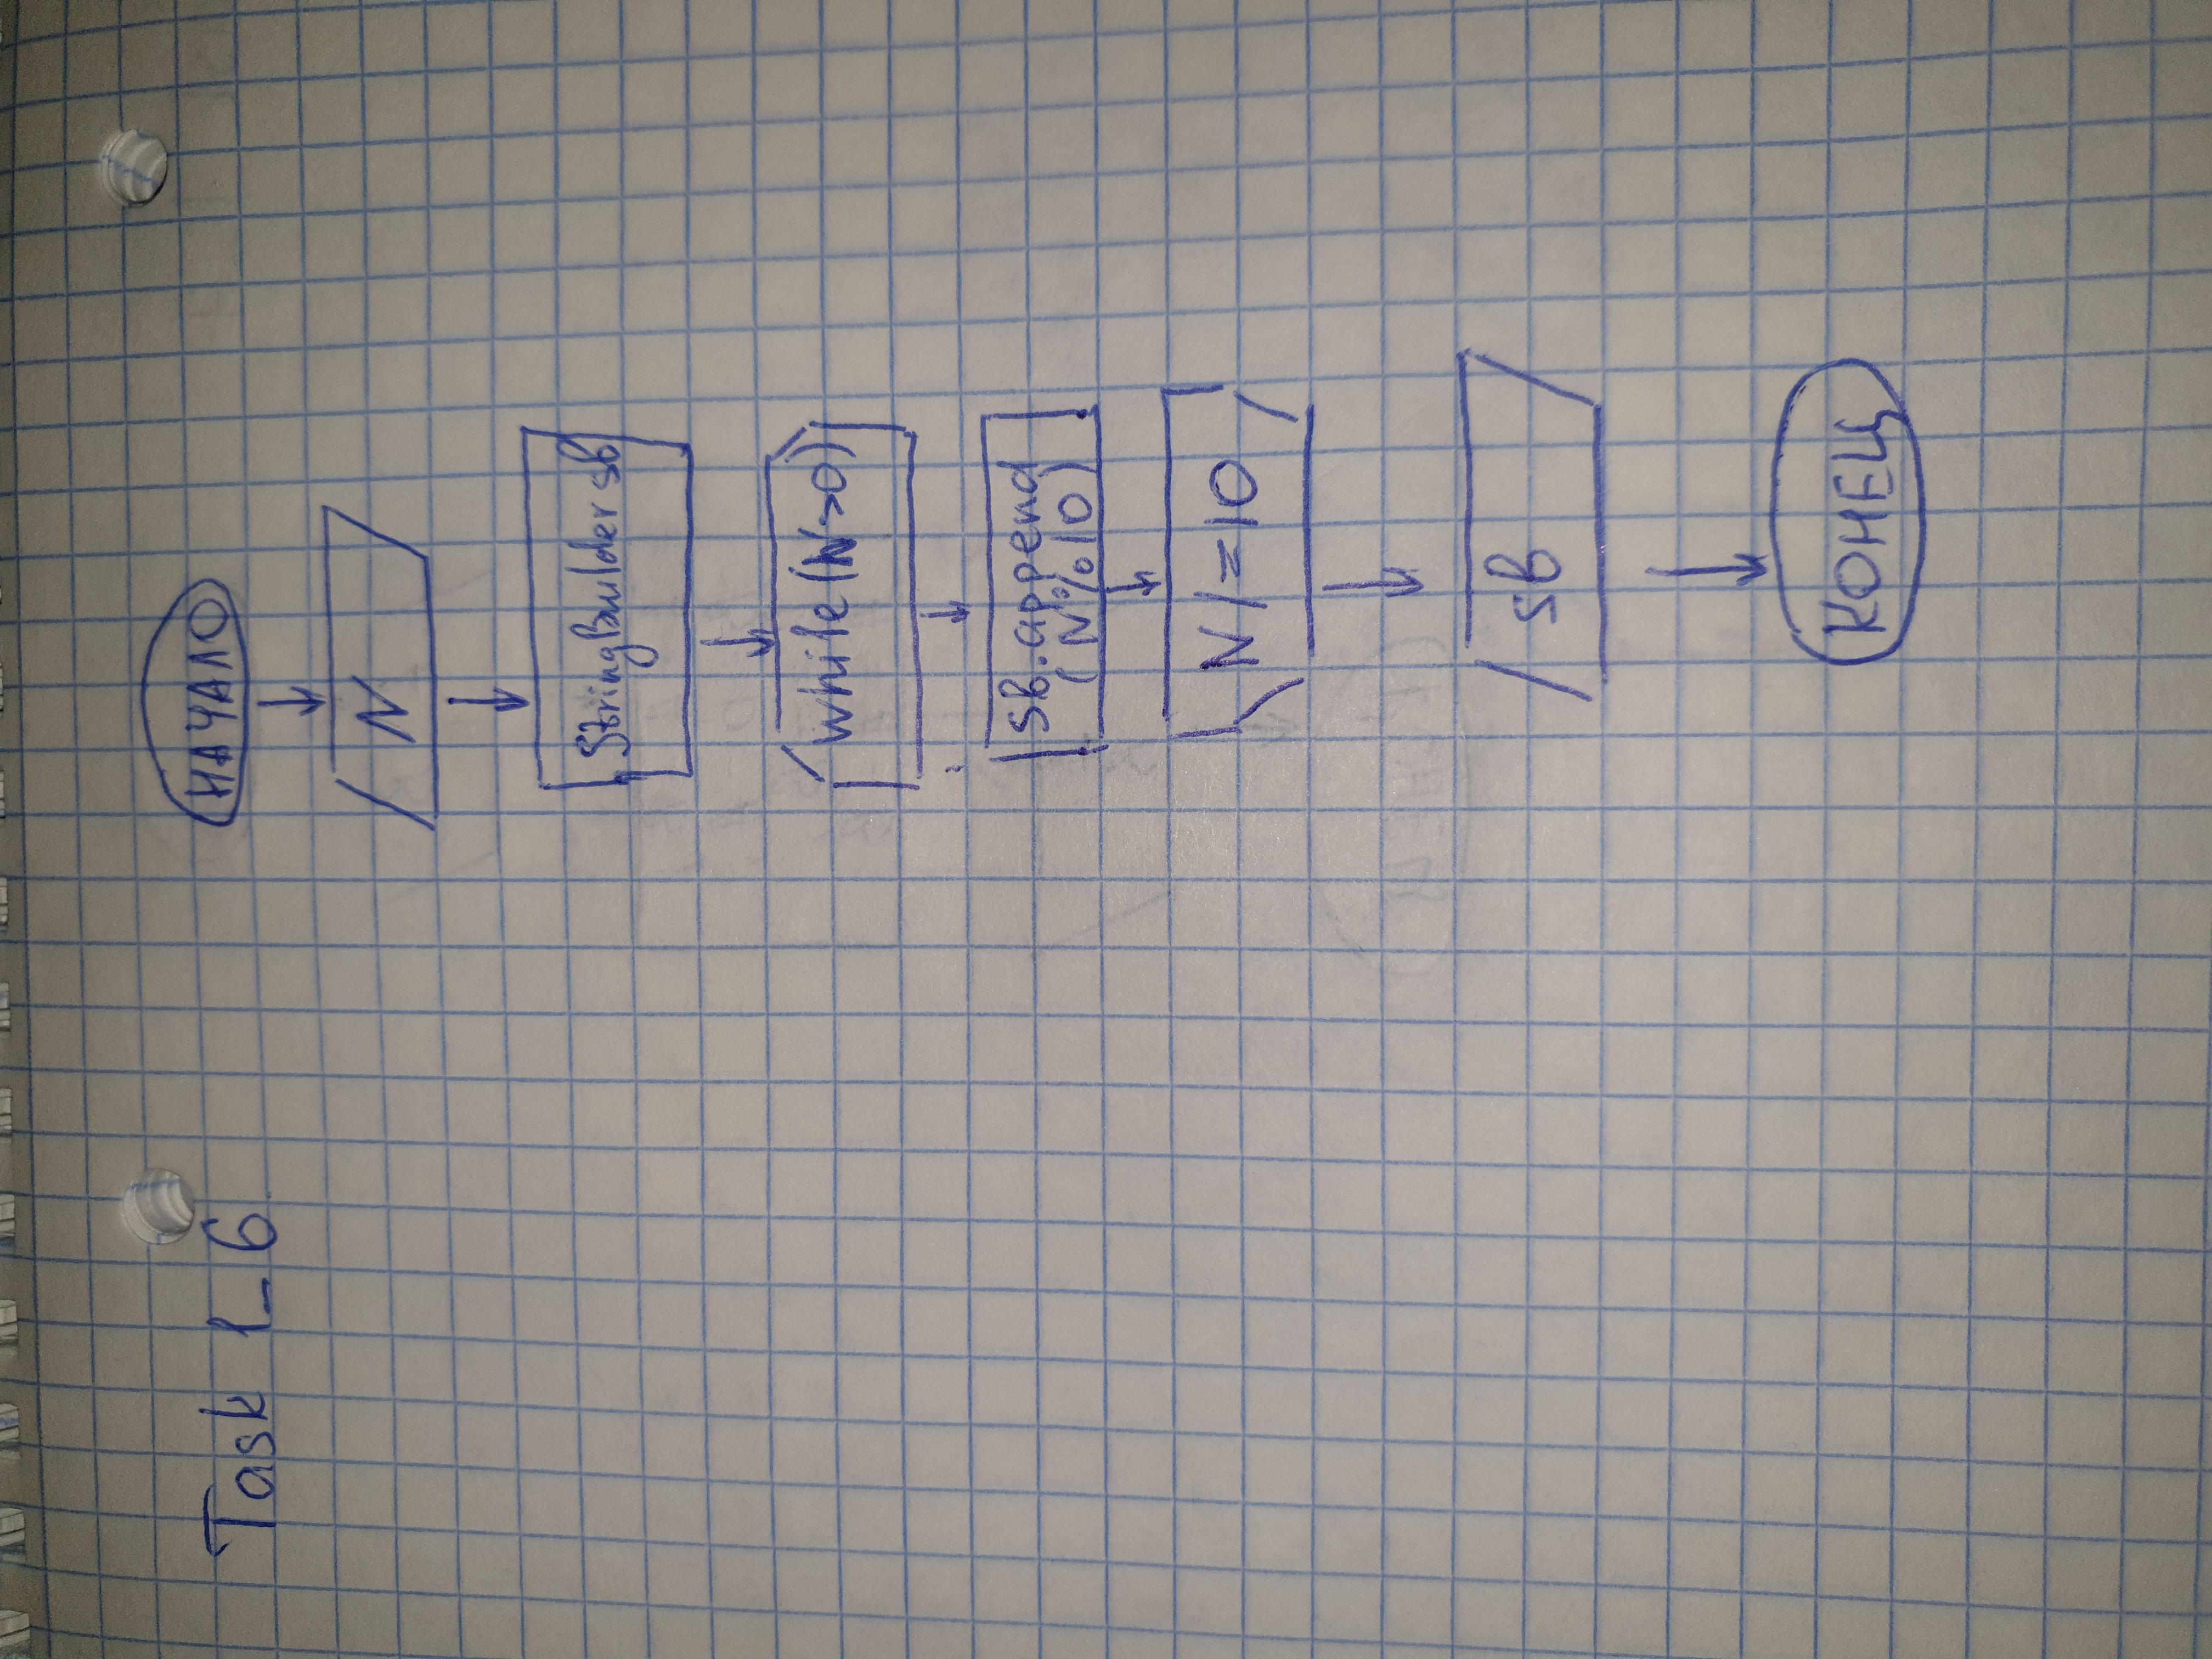 Task 1_6
НАЧАЛО
N
StringBuilder sb
while(N>0)
sb.append
(N%10)
N/=10
sb
КОНЕЦ